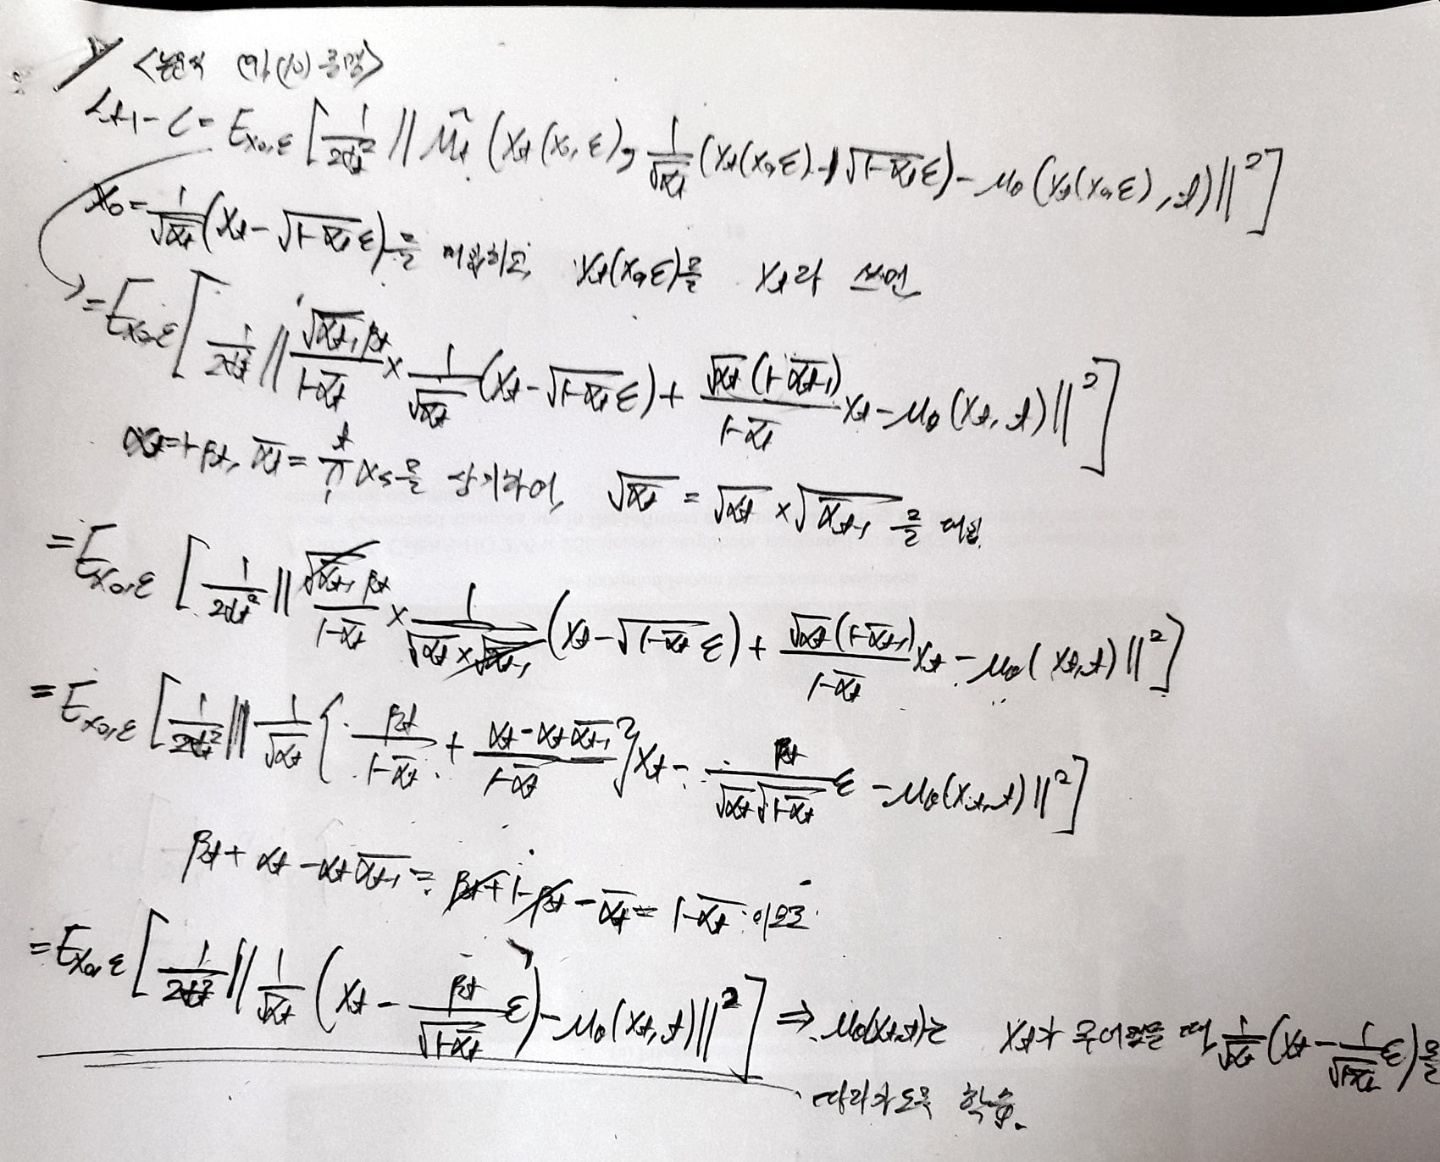 <논문식 (9),(10) 증명>
L_{t-1} - C = E_{x_0,ε} [ \frac{1}{2σ_t^2} || \tilde{μ}_t ( x_t(x_0, ε), \frac{1}{\sqrt{\bar{α}_t}} (x_t(x_0,ε) - \sqrt{1-\bar{α}_t} ε) - μ_θ (x_t(x_0,ε), t) ||^2 ]
x_0 = \frac{1}{\sqrt{\bar{α}_t}} (x_t - \sqrt{1-\bar{α}_t} ε)를 대입하고, x_t(x_0,ε)를 x_t라 쓰면
= E_{x_0,ε} [ \frac{1}{2σ_t^2} || \frac{\sqrt{\bar{α}_{t-1}} β_t}{1-\bar{α}_t} × \frac{1}{\sqrt{\bar{α}_t}} (x_t - \sqrt{1-\bar{α}_t} ε) + \frac{\sqrt{α_t} (1-\bar{α}_{t-1})}{1-\bar{α}_t} x_t - μ_θ (x_t, t) ||^2 ]
α_t = 1-β_t, \bar{α}_t = \prod_{1}^{t} α_s를 상기하여, \sqrt{\bar{α}_t} = \sqrt{α_t} × \sqrt{\bar{α}_{t-1}} 를 대입.
= E_{x_0,ε} [ \frac{1}{2σ_t^2} || \frac{\sqrt{\bar{α}_{t-1}} β_t}{1-\bar{α}_t} × \frac{1}{\sqrt{α_t} × \sqrt{\bar{α}_{t-1}}} (x_t - \sqrt{1-\bar{α}_t} ε) + \frac{\sqrt{α_t} (1-\bar{α}_{t-1})}{1-\bar{α}_t} x_t - μ_θ (x_t, t) ||^2 ]
= E_{x_0,ε} [ \frac{1}{2σ_t^2} || \frac{1}{\sqrt{α_t}} { \frac{β_t}{1-\bar{α}_t} + \frac{α_t - α_t \bar{α}_{t-1}}{1-\bar{α}_t} } x_t - \frac{β_t}{\sqrt{α_t} \sqrt{1-\bar{α}_t}} ε - μ_θ(x_t, t) ||^2 ]
β_t + α_t - α_t \bar{α}_{t-1} = β_t + 1 - β_t - \bar{α}_t = 1-\bar{α}_t 이므로
= E_{x_0,ε} [ \frac{1}{2σ_t^2} || \frac{1}{\sqrt{α_t}} ( x_t - \frac{β_t}{\sqrt{1-\bar{α}_t}} ε ) - μ_θ (x_t, t) ||^2 ] ⇒ μ_θ(x_t,t)는 x_t가 주어졌을 때 \frac{1}{\sqrt{α_t}} (x_t - \frac{1}{\sqrt{1-\bar{α}_t}} ε)을
따라가도록 학습.